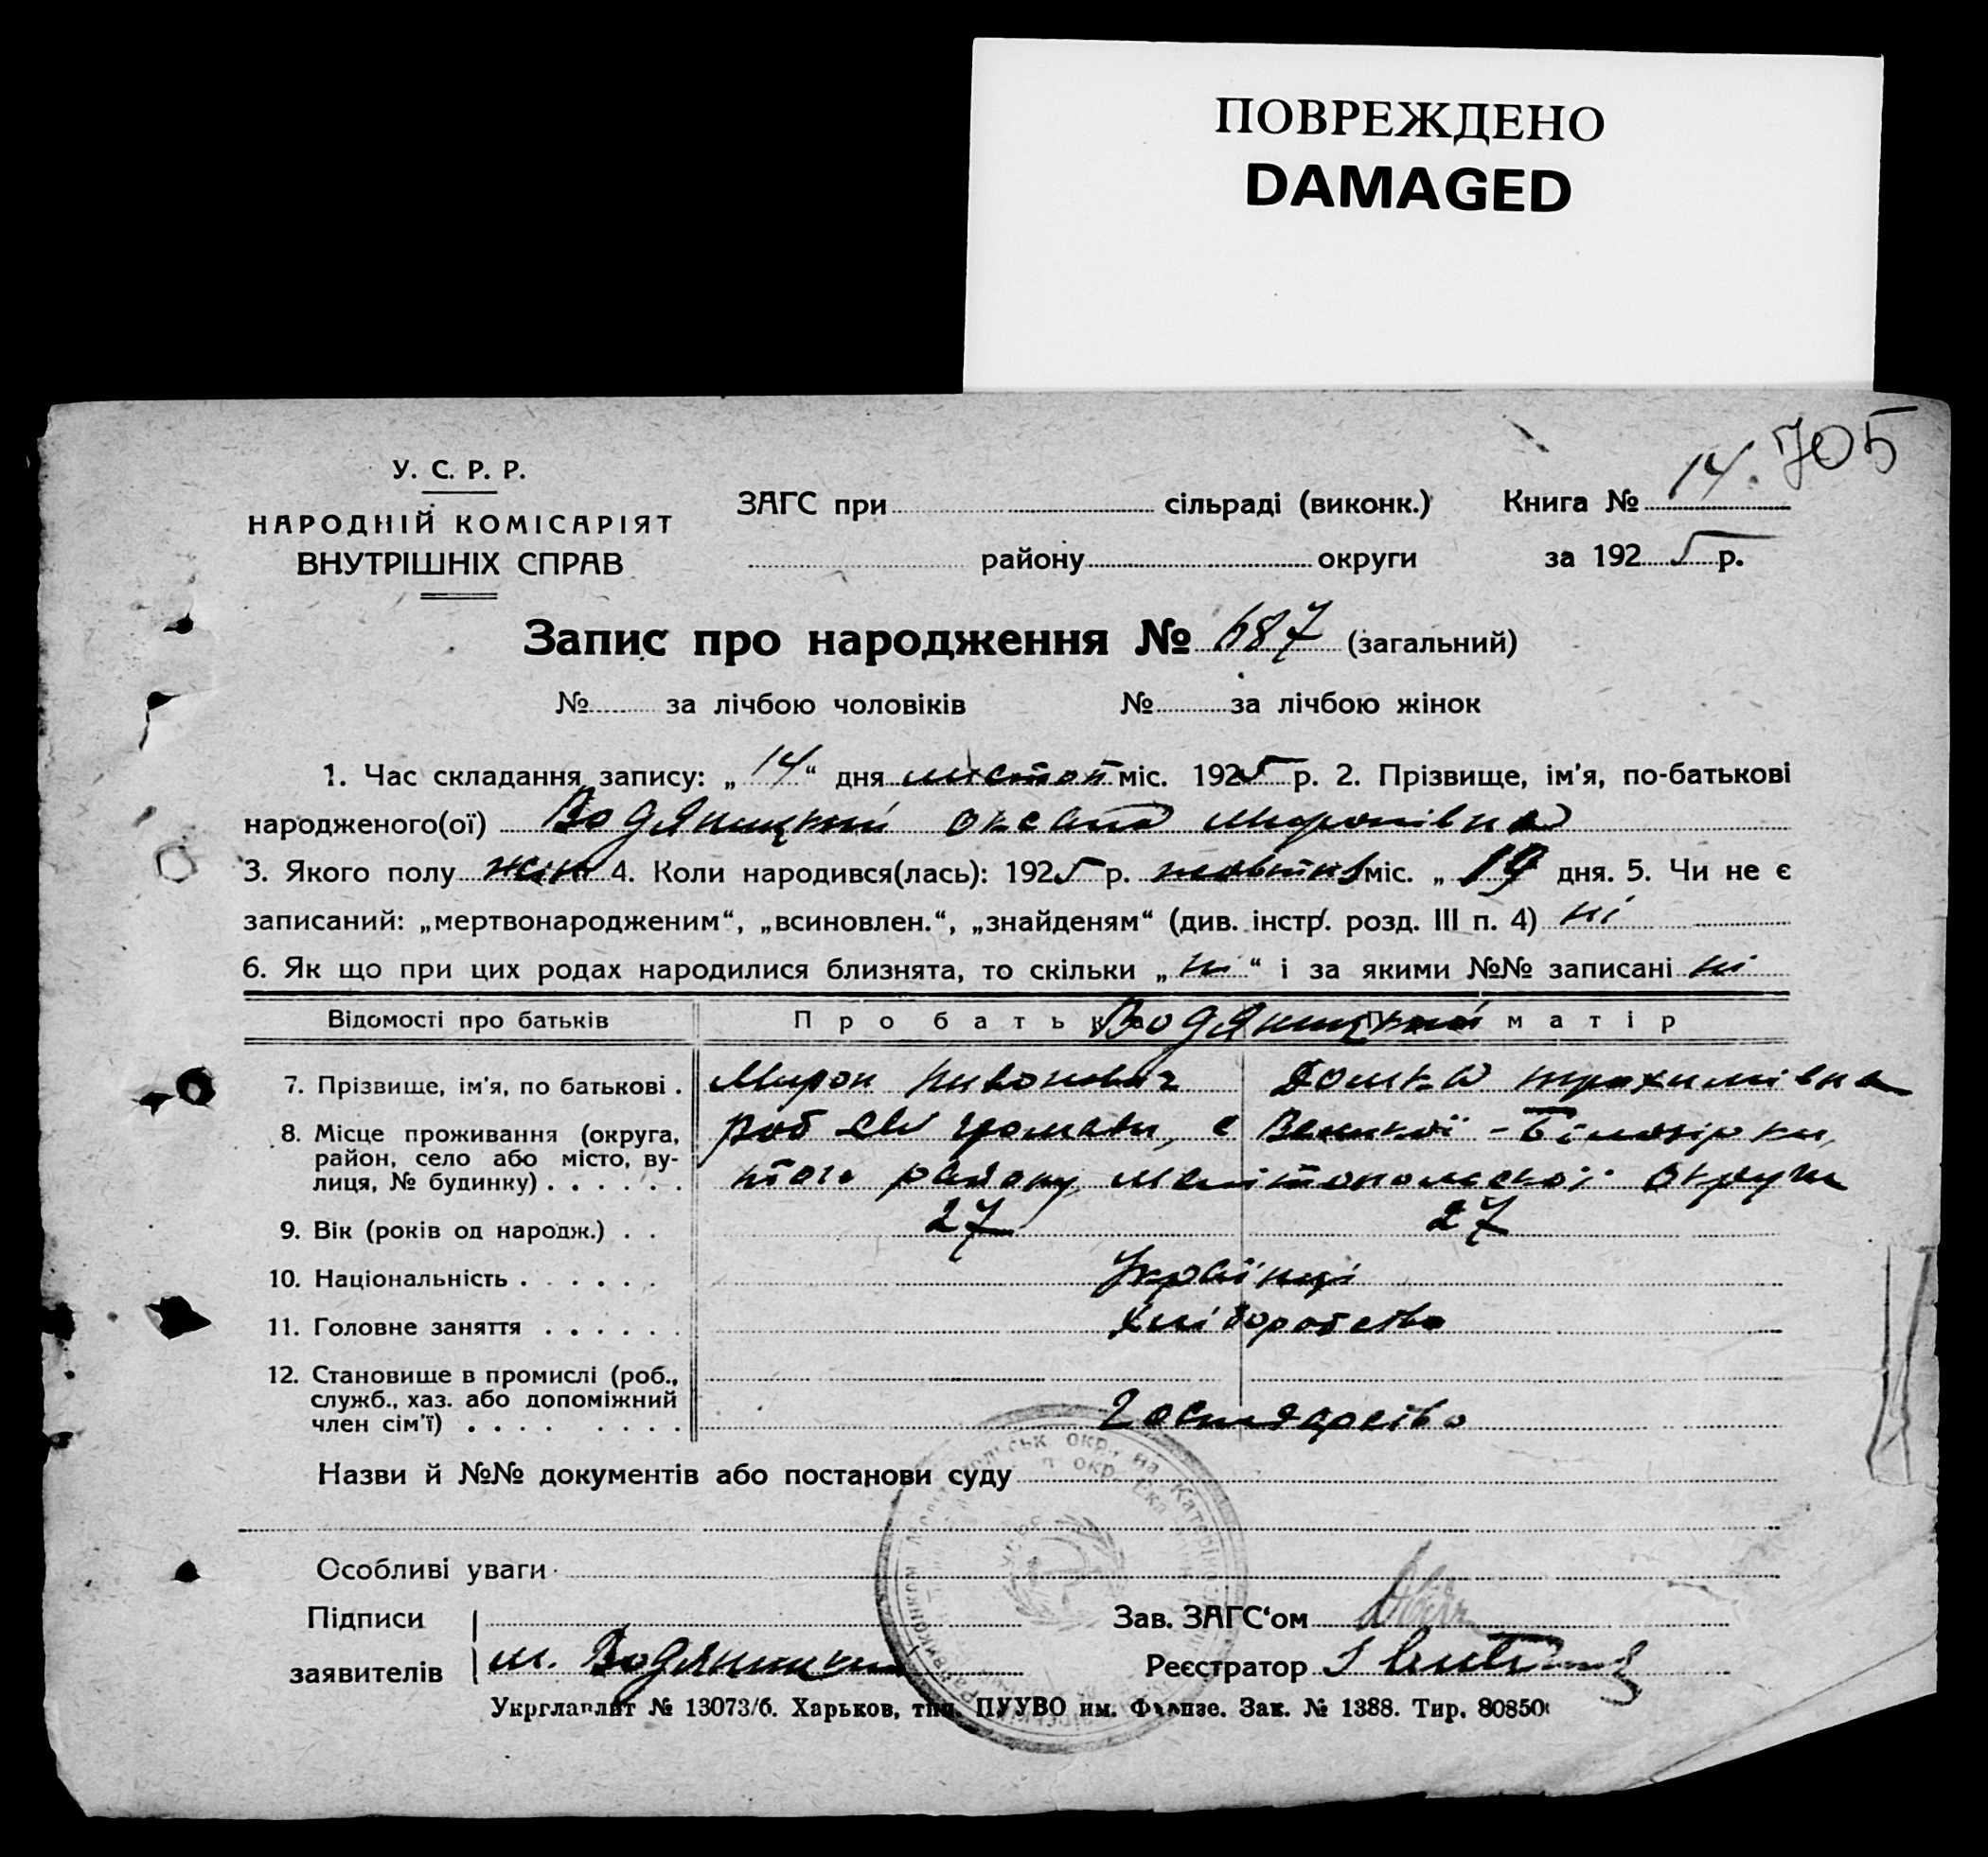 ПОВРЕЖДЕНО
DAMAGED
705
У. С. Р. Р.
НАРОДНІЙ КОМІСАРІЯТ
ВНУТРІШНІХ СПРАВ
ЗАГС при сільраді (виконк.) Книга № 14.
району округи за 1925 р.
Запис про народження № 687 (загальний)
№ за лічбою чоловіків № за лічбою жінок
1. Час складання запису: „14“ дня листоп міс. 1925 р. 2. Прізвище, ім'я, по-батькові
народженого(ої) Водяницкий Оксана Миронівна
3. Якого полу жін 4. Коли народився(лась): 1925 р. жовтня міс. „ 19 дня. 5. Чи не є
записаний: „мертвонародженим“, „всиновлен.“, „знайденям“ (див. інстр. розд. III п. 4) ні
6. Як що при цих родах народилися близнята, то скільки „ні“ і за якими №№ записані ні
Відомості про батьків Про батька Водяницкий Про матір
7. Прізвище, ім'я, по батькові . Мирон Никонович Домка Трохимівна
8. Місце проживання (округа, район, село або місто, вулиця, № будинку) . . . . . . громади, с Великої - Білозірки,
того району, Мелітопольської Округи
9. Вік (років од народж.) . . 27 27
10. Національність . . . . . . Українці
11. Головне заняття . . . . . . Хліборобство
12. Становище в промислі (роб.,
служб., хаз. або допоміжний
член сім'ї) . . . . . . . . Господарство
Назви й №№ документів або постанови суду
Особливі уваги
Підписи Зав. ЗАГС'ом
заявителів М. Водяницкий Реєстратор
Укрглавліт № 13073/б. Харьков, тип. ПУУВО им. Фрунзе. Зак. № 1388. Тир. 80850